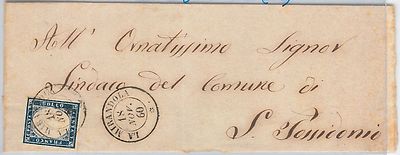 All' Ornatissimo Signor
Sindaco del Comune di
S. Possidonio
LA MIRANDOLA
18
NOV
60
FRANCO